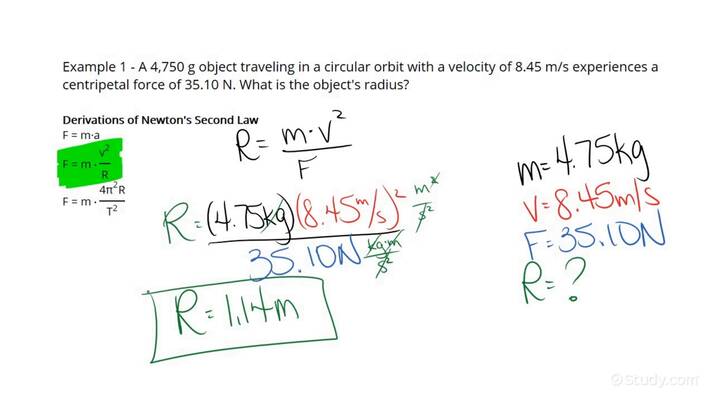 Example 1 - A 4,750 g object traveling in a circular orbit with a velocity of 8.45 m/s experiences a
centripetal force of 35.10 N. What is the object's radius?
Derivations of Newton's Second Law
F = m·a
F = m · v²/R
F = m · 4π²R/T²
R = m·v²/F
m=4.75kg
V=8.45m/s
F=35.10N
R=?
R = (4.75kg)(8.45m/s)² m²/s²
35.10N kg·m/s²
R=1.14m
Study.com